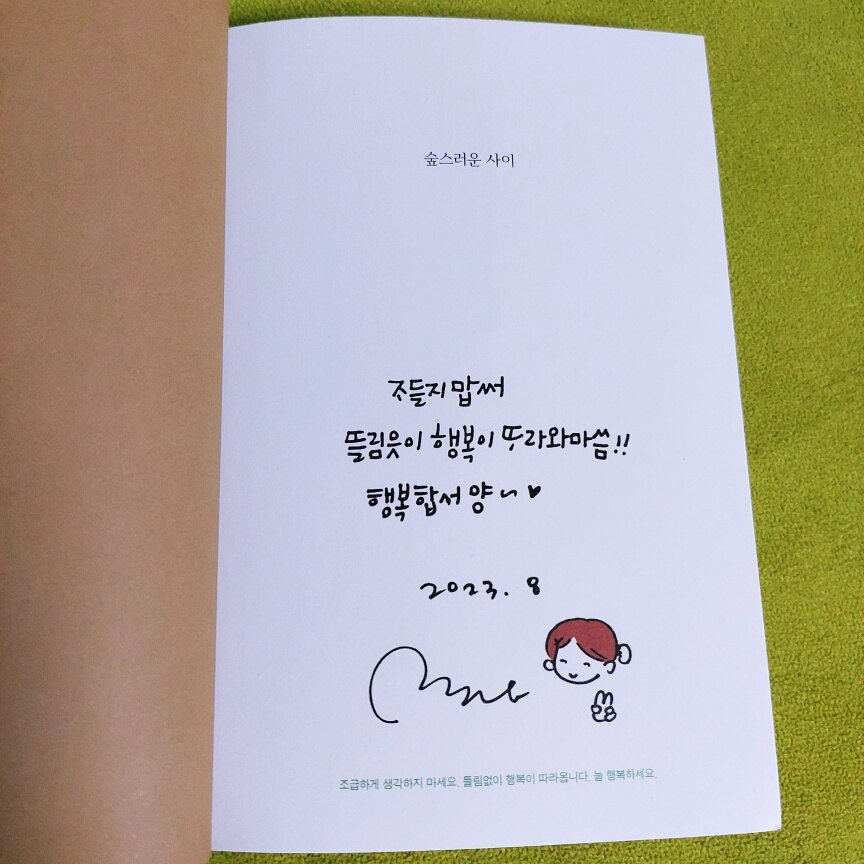 숲스러운 사이
조들지 맙써
뜰림읏이 행복이 뚜라와마씀!!
행복합서양~♥
2023. 8
조급하게 생각하지 마세요. 틀림없이 행복이 따라옵니다. 늘 행복하세요.